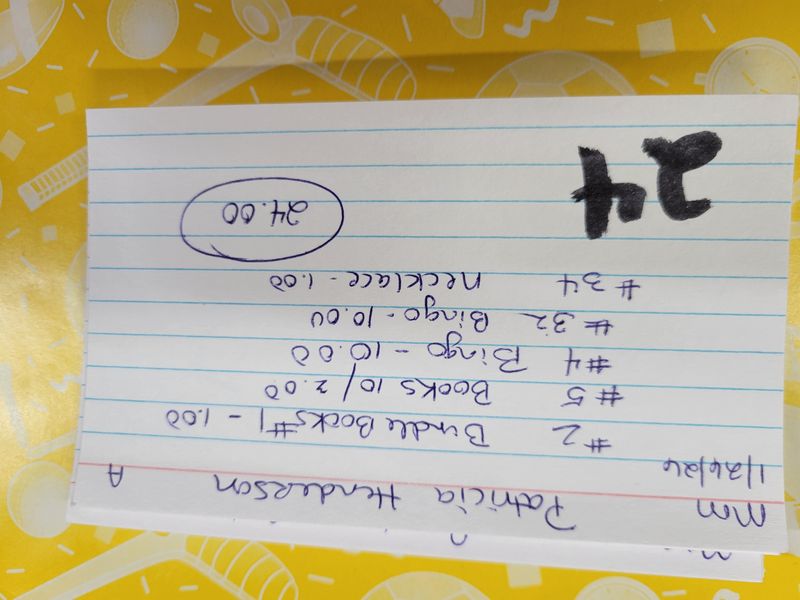 Mm Patricia Henderson A
1/24/26
#2 Bindle Books #1 - 1.00
#5 Books 10/2.00
#4 Bingo - 10.00
#32 Bingo - 10.00
#34 Necklace - 1.00
24.00
24